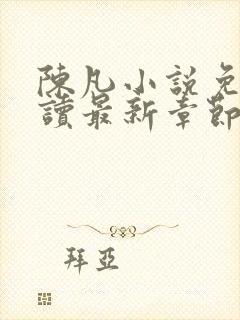 陳凡小說免
讀最新章節
拜亞